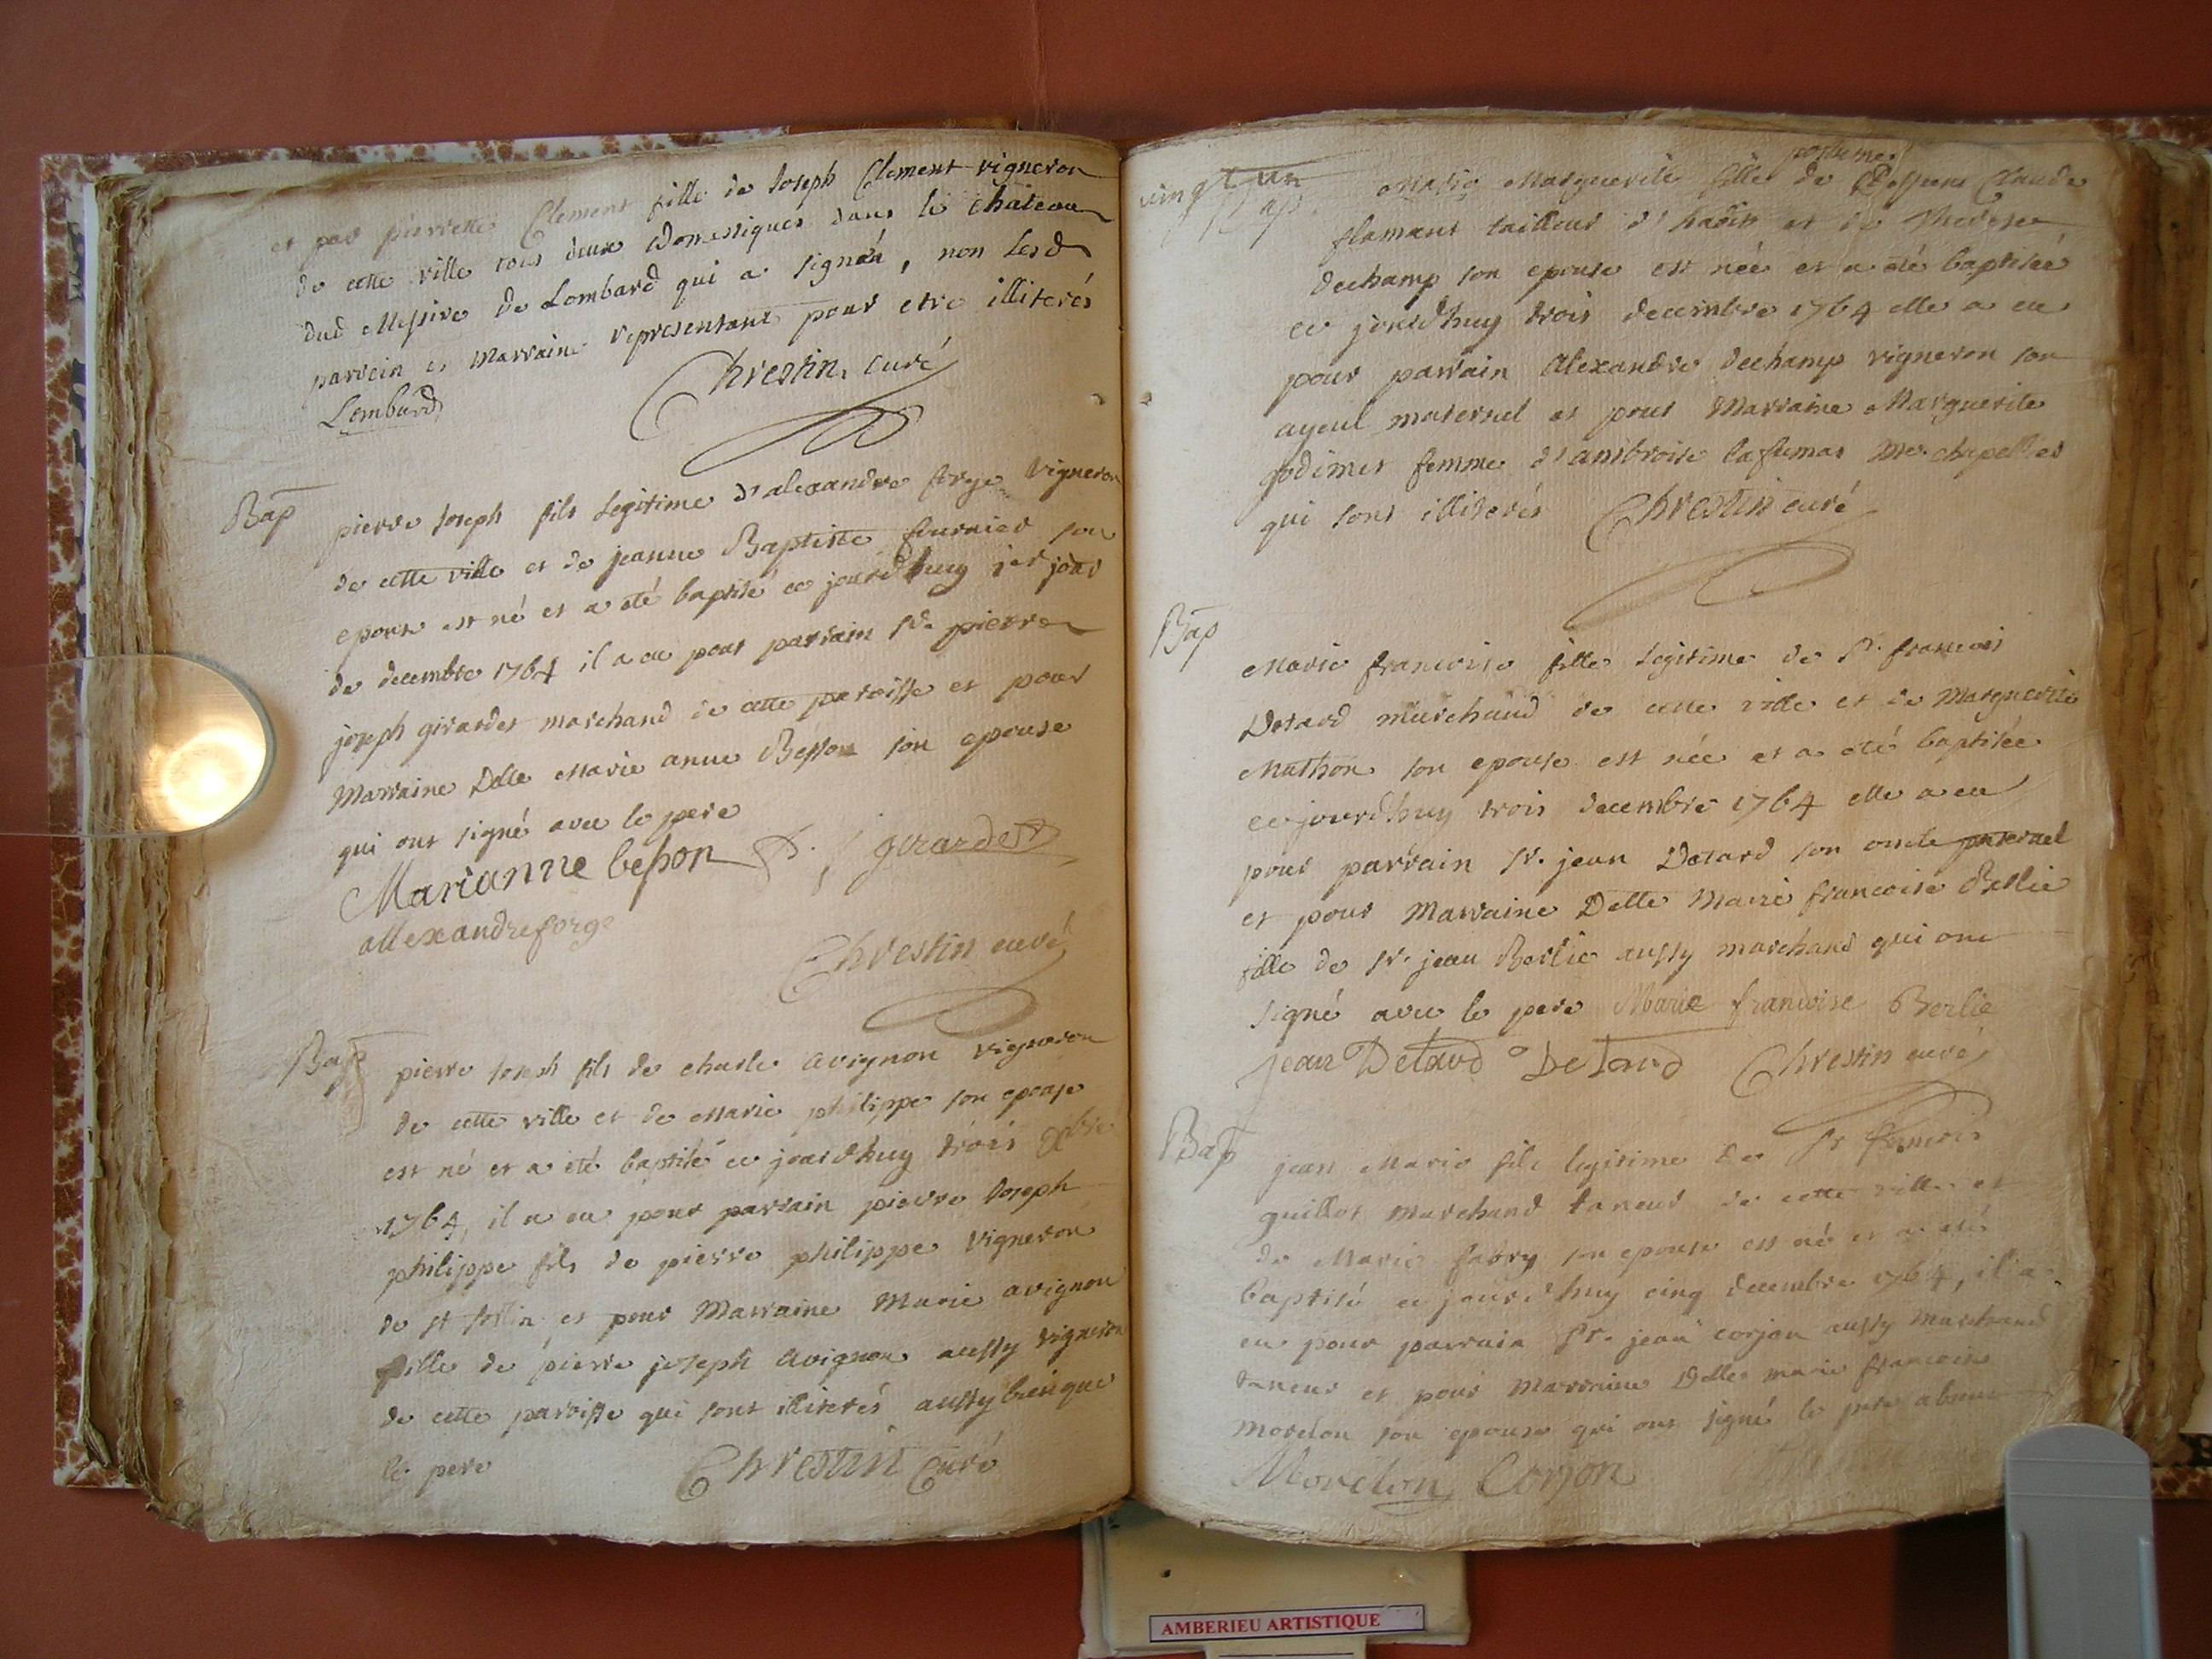 et par pierrette Clement fille de Joseph Clement vigneron
de cette ville tous deux domestiques dans le chateau
dud Messire de Lombard qui a signé, non lesd
parrein et marraine representant pour etre illiterés
Chrestin, curé
Lombard
Bap
pierre joseph fils legitime d'alexandre forge vigneron
de cette ville et de jeanne Baptiste fournier son
epouse est né et a eté baptisé ce jourdhuy 1er jour
de decembre 1764 il a eu pour parrain sr. pierre
joseph girardet marchand de cette paroisse et pour
Marraine Delle Marie anne Besson son epouse
qui ont signé avec le pere
Marianne beson P. j girardet
allexandre forge
Chrestin curé
Bap
pierre joseph fils de charle avignon vigneron
de cette ville et de Marie philippe son epouse
est né et a eté baptisé ce jourdhuy trois Xbre
1764, il a eu pour parrain pierre Joseph
philippe fils de pierre philippe vigneron
de st sorlin et pour Marraine Marie avignon
fille de pierre joseph avignon aussy vigneron
de cette paroisse qui sont illiterés aussy bien que
le pere
Chrestin Curé
vingt un
Bap
postume
Marie Marguerite fille de Claude
flamant tailleur d'habits et de Therese
dechamp son epouse est née et a eté baptisée
ce jourdhuy trois decembre 1764 elle a eu
pour parrain alexandre dechamp vigneron son
ayeul maternel et pour Marraine Marguerite
godimet femme d'ambroise Me. chapellier
qui sont illiterés Chrestin curé
Bap
Marie francoise fille legitime de Sr. francois
Detard marchand de cette ville et de Marguerite
Muthon son epouse est née et a eté baptisée
ce jourdhuy trois decembre 1764 elle a eu
pour parrain sr. jean Detard son oncle paternel
et pour Marraine Delle Marie francoise Berlie
fille de sr. jean Berlie aussy marchand qui ont
signé avec le pere Marie francoise Berlie
Jean Detard Detard Chrestin curé
Bap
jean Marie fils legitime de Sr francois
guillot marchand taneur de cette ville et
de Marie fabry son epouse est né et a eté
baptisé ce jourdhuy cinq decembre 1764, il a
eu pour parrain Sr. jean corjon aussy marchand
taneur et pour Marraine Delle marie francoise
morelon son epouse qui ont signé le pere absent
Morelon Corjon
AMBERIEU ARTISTIQUE